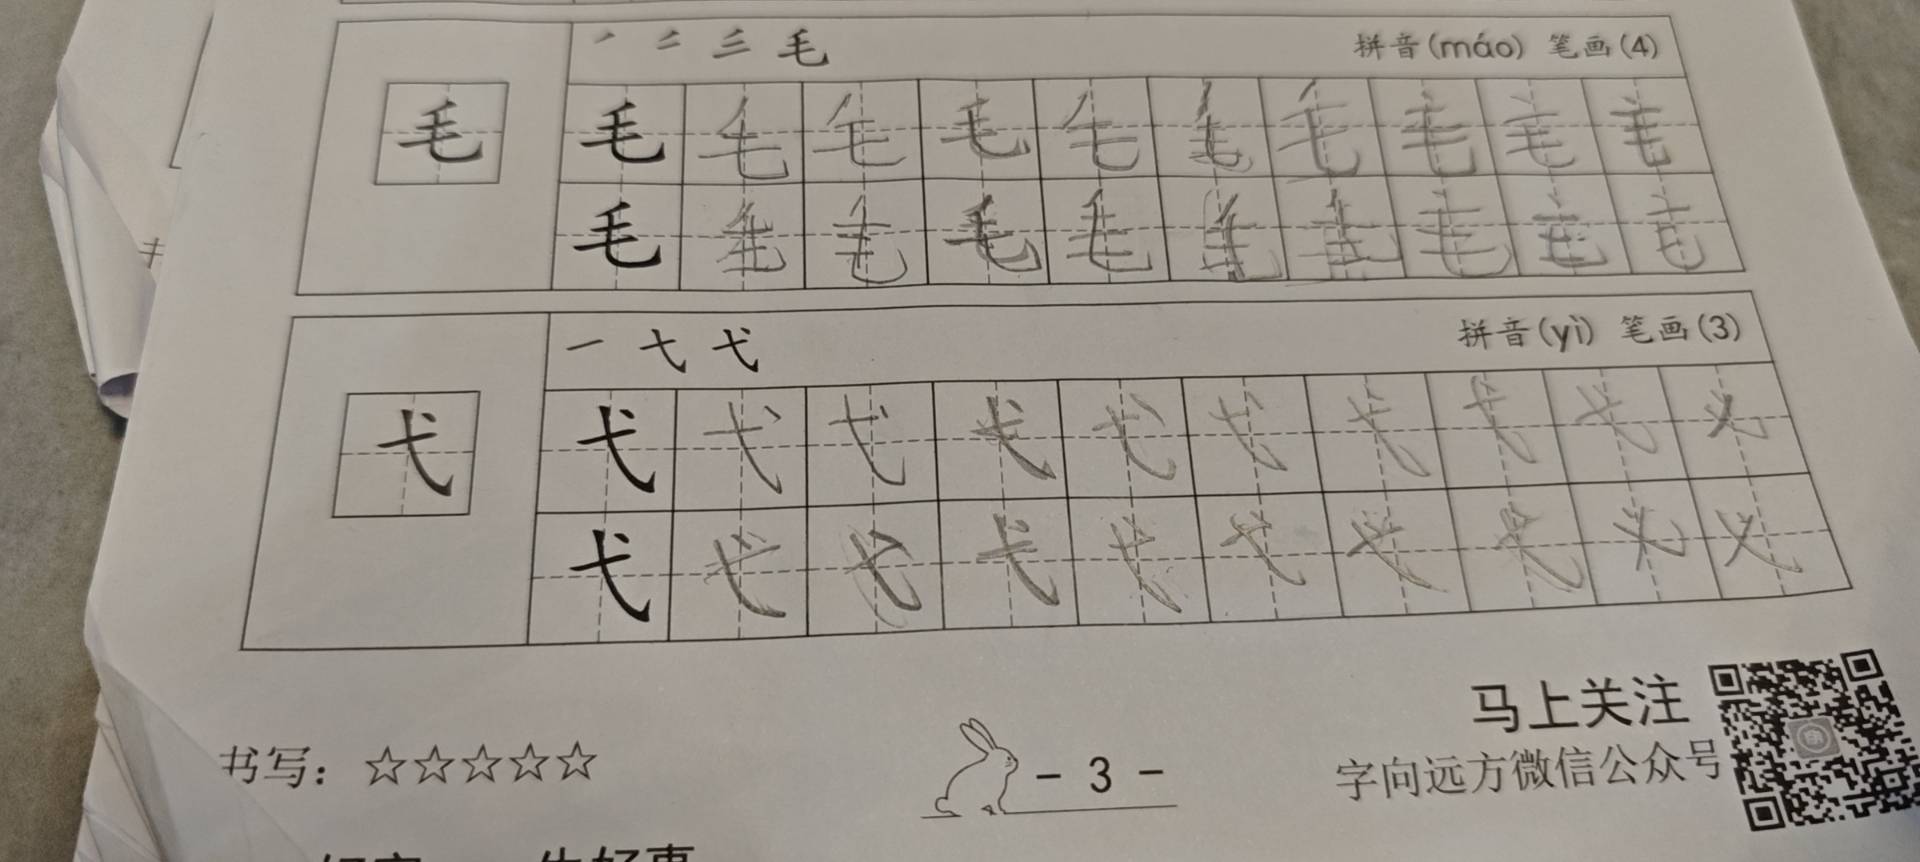 毛 拼音(máo) 笔画(4)
毛 毛 毛 毛 毛 毛 毛 毛 毛 毛 毛
毛 毛 毛 毛 毛 毛 毛 毛 毛 毛
一 七 弋 拼音(yì) 笔画(3)
弋 弋 弋 弋 弋 弋 弋 弋 弋 弋 弋
弋 弋 弋 弋 弋 弋 弋 弋 弋 弋
马上关注
书写：☆☆☆☆☆ - 3 - 字向远方微信公众号